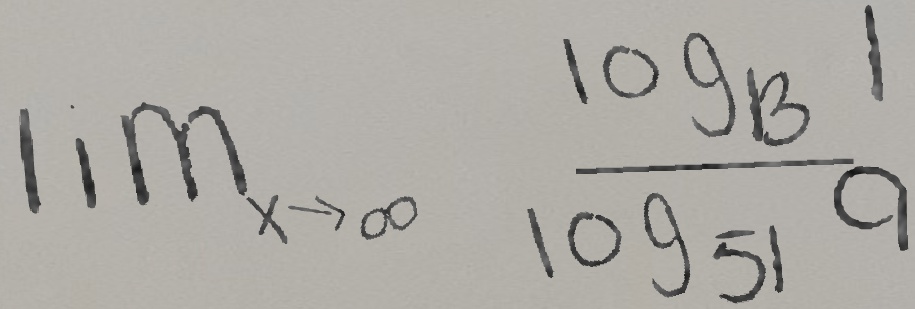 lim_{x→∞} \frac{log_{13} 1}{log_{51} 9}